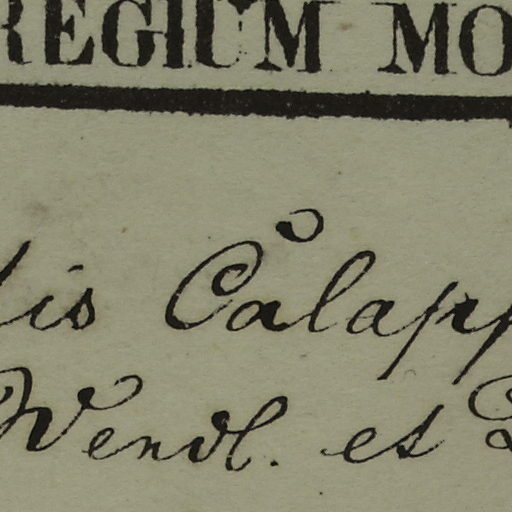 REGIUM MO
lis Calapp
Wendl. et